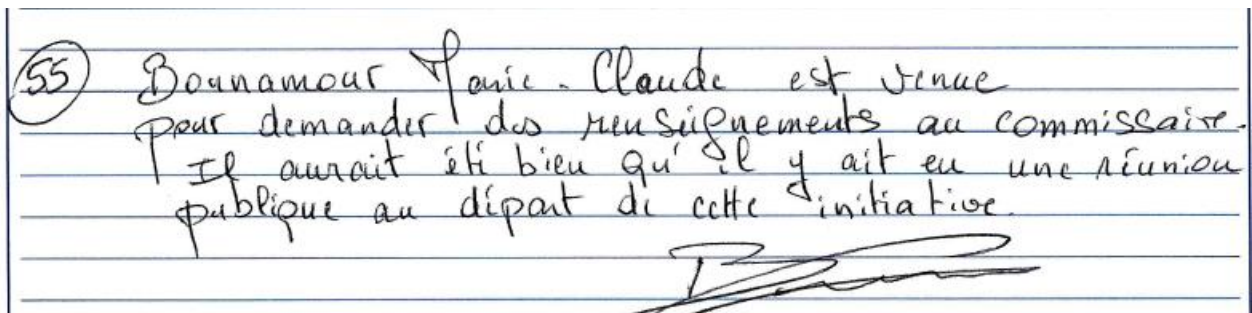 55 Bonnamour Marie-Claude est venue
pour demander des renseignements au commissaire.
Il aurait été bien qu'il y ait eu une réunion
publique au départ de cette initiative.